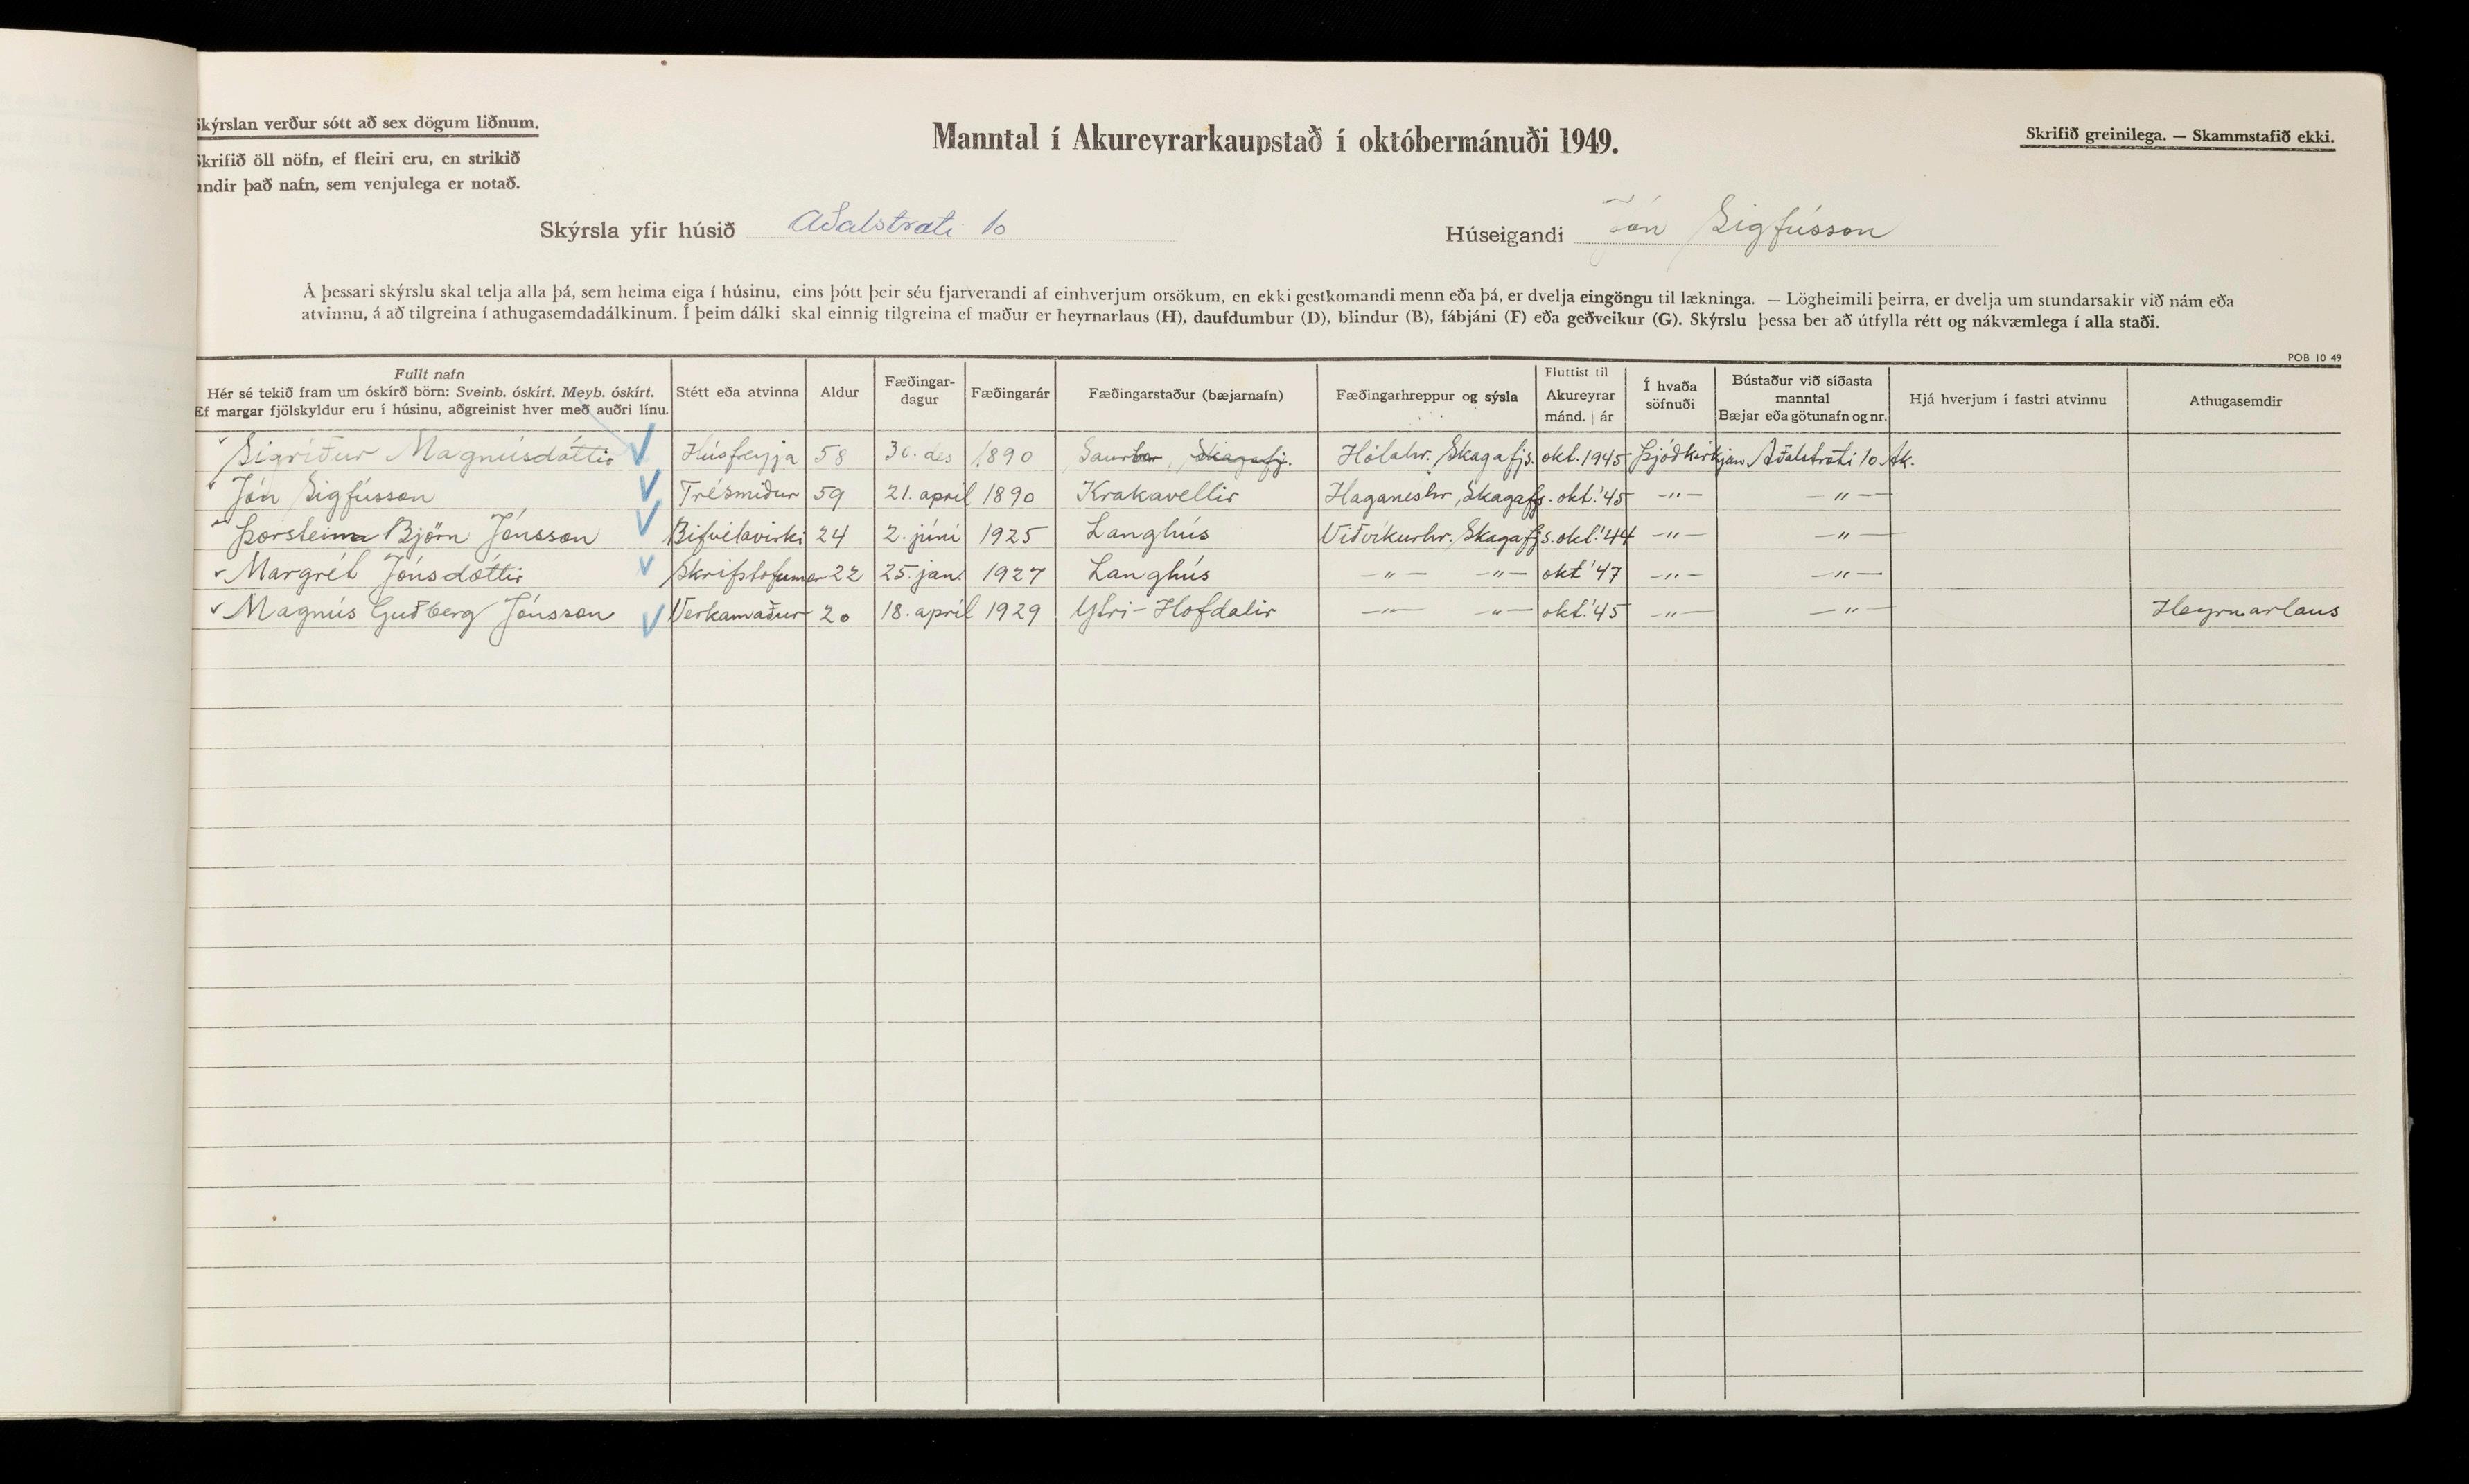 Skýrslan verður sótt að sex dögum liðnum.
Skrifið öll nöfn, ef fleiri eru, en strikið
undir það nafn, sem venjulega er notað.
Manntal í Akureyrarkaupstað í októbermánuði 1949.
Skrifið greinilega. — Skammstafið ekki.
Skýrsla yfir húsið Aðalstræti 10
Húseigandi Jón Sigfússon
Á þessari skýrslu skal telja alla þá, sem heima eiga í húsinu, eins þótt þeir séu fjarverandi af einhverjum orsökum, en ekki gestkomandi menn eða þá, er dvelja eingöngu til lækninga. — Lögheimili þeirra, er dvelja um stundarsakir við nám eða
atvinnu, á að tilgreina í athugasemdadálkinum. Í þeim dálki skal einnig tilgreina ef maður er heyrnarlaus (H), daufdumbur (D), blindur (B), fábjáni (F) eða geðveikur (G). Skýrslu þessa ber að útfylla rétt og nákvæmlega í alla staði.
POB 10 49
Fullt nafn
Hér sé tekið fram um óskírð börn: Sveinb. óskírt. Meyb. óskírt.
Ef margar fjölskyldur eru í húsinu, aðgreinist hver með auðri línu.
Stétt eða atvinna
Aldur
Fæðingar-
dagur
Fæðingarár
Fæðingarstaður (bæjarnafn)
Fæðingarhreppur og sýsla
Fluttist til
Akureyrar
mánd. | ár
Í hvaða
söfnuði
Bústaður við síðasta
manntal
Bæjar eða götunafn og nr.
Hjá hverjum í fastri atvinnu
Athugasemdir
Sigríður Magnúsdóttir Húsfreyja 58 30. des 1890 Saurbær, Skagafj. Hólahr. Skagafjs. okt. 1945 Þjóðkirkjan Aðalstræti 10 Ak.
Jón Sigfússon Trésmiður 59 21. apríl 1890 Krakavellir Haganeshr, Skagafjs. okt. '45 -"- -"-
Þorsteinn Björn Jónsson Bifvélavirki 24 2. júní 1925 Langhús Viðvíkurhr. Skagafjs. okt. '44 -"- -"-
Margrét Jónsdóttir Skrifstofumær 22 25. jan. 1927 Langhús -"- -"- okt '47 -"- -"-
Magnús Guðberg Jónsson Verkamaður 20 18. apríl 1929 Ytri-Hofdalir -"- -"- okt. '45 -"- -"- Heyrnarlaus